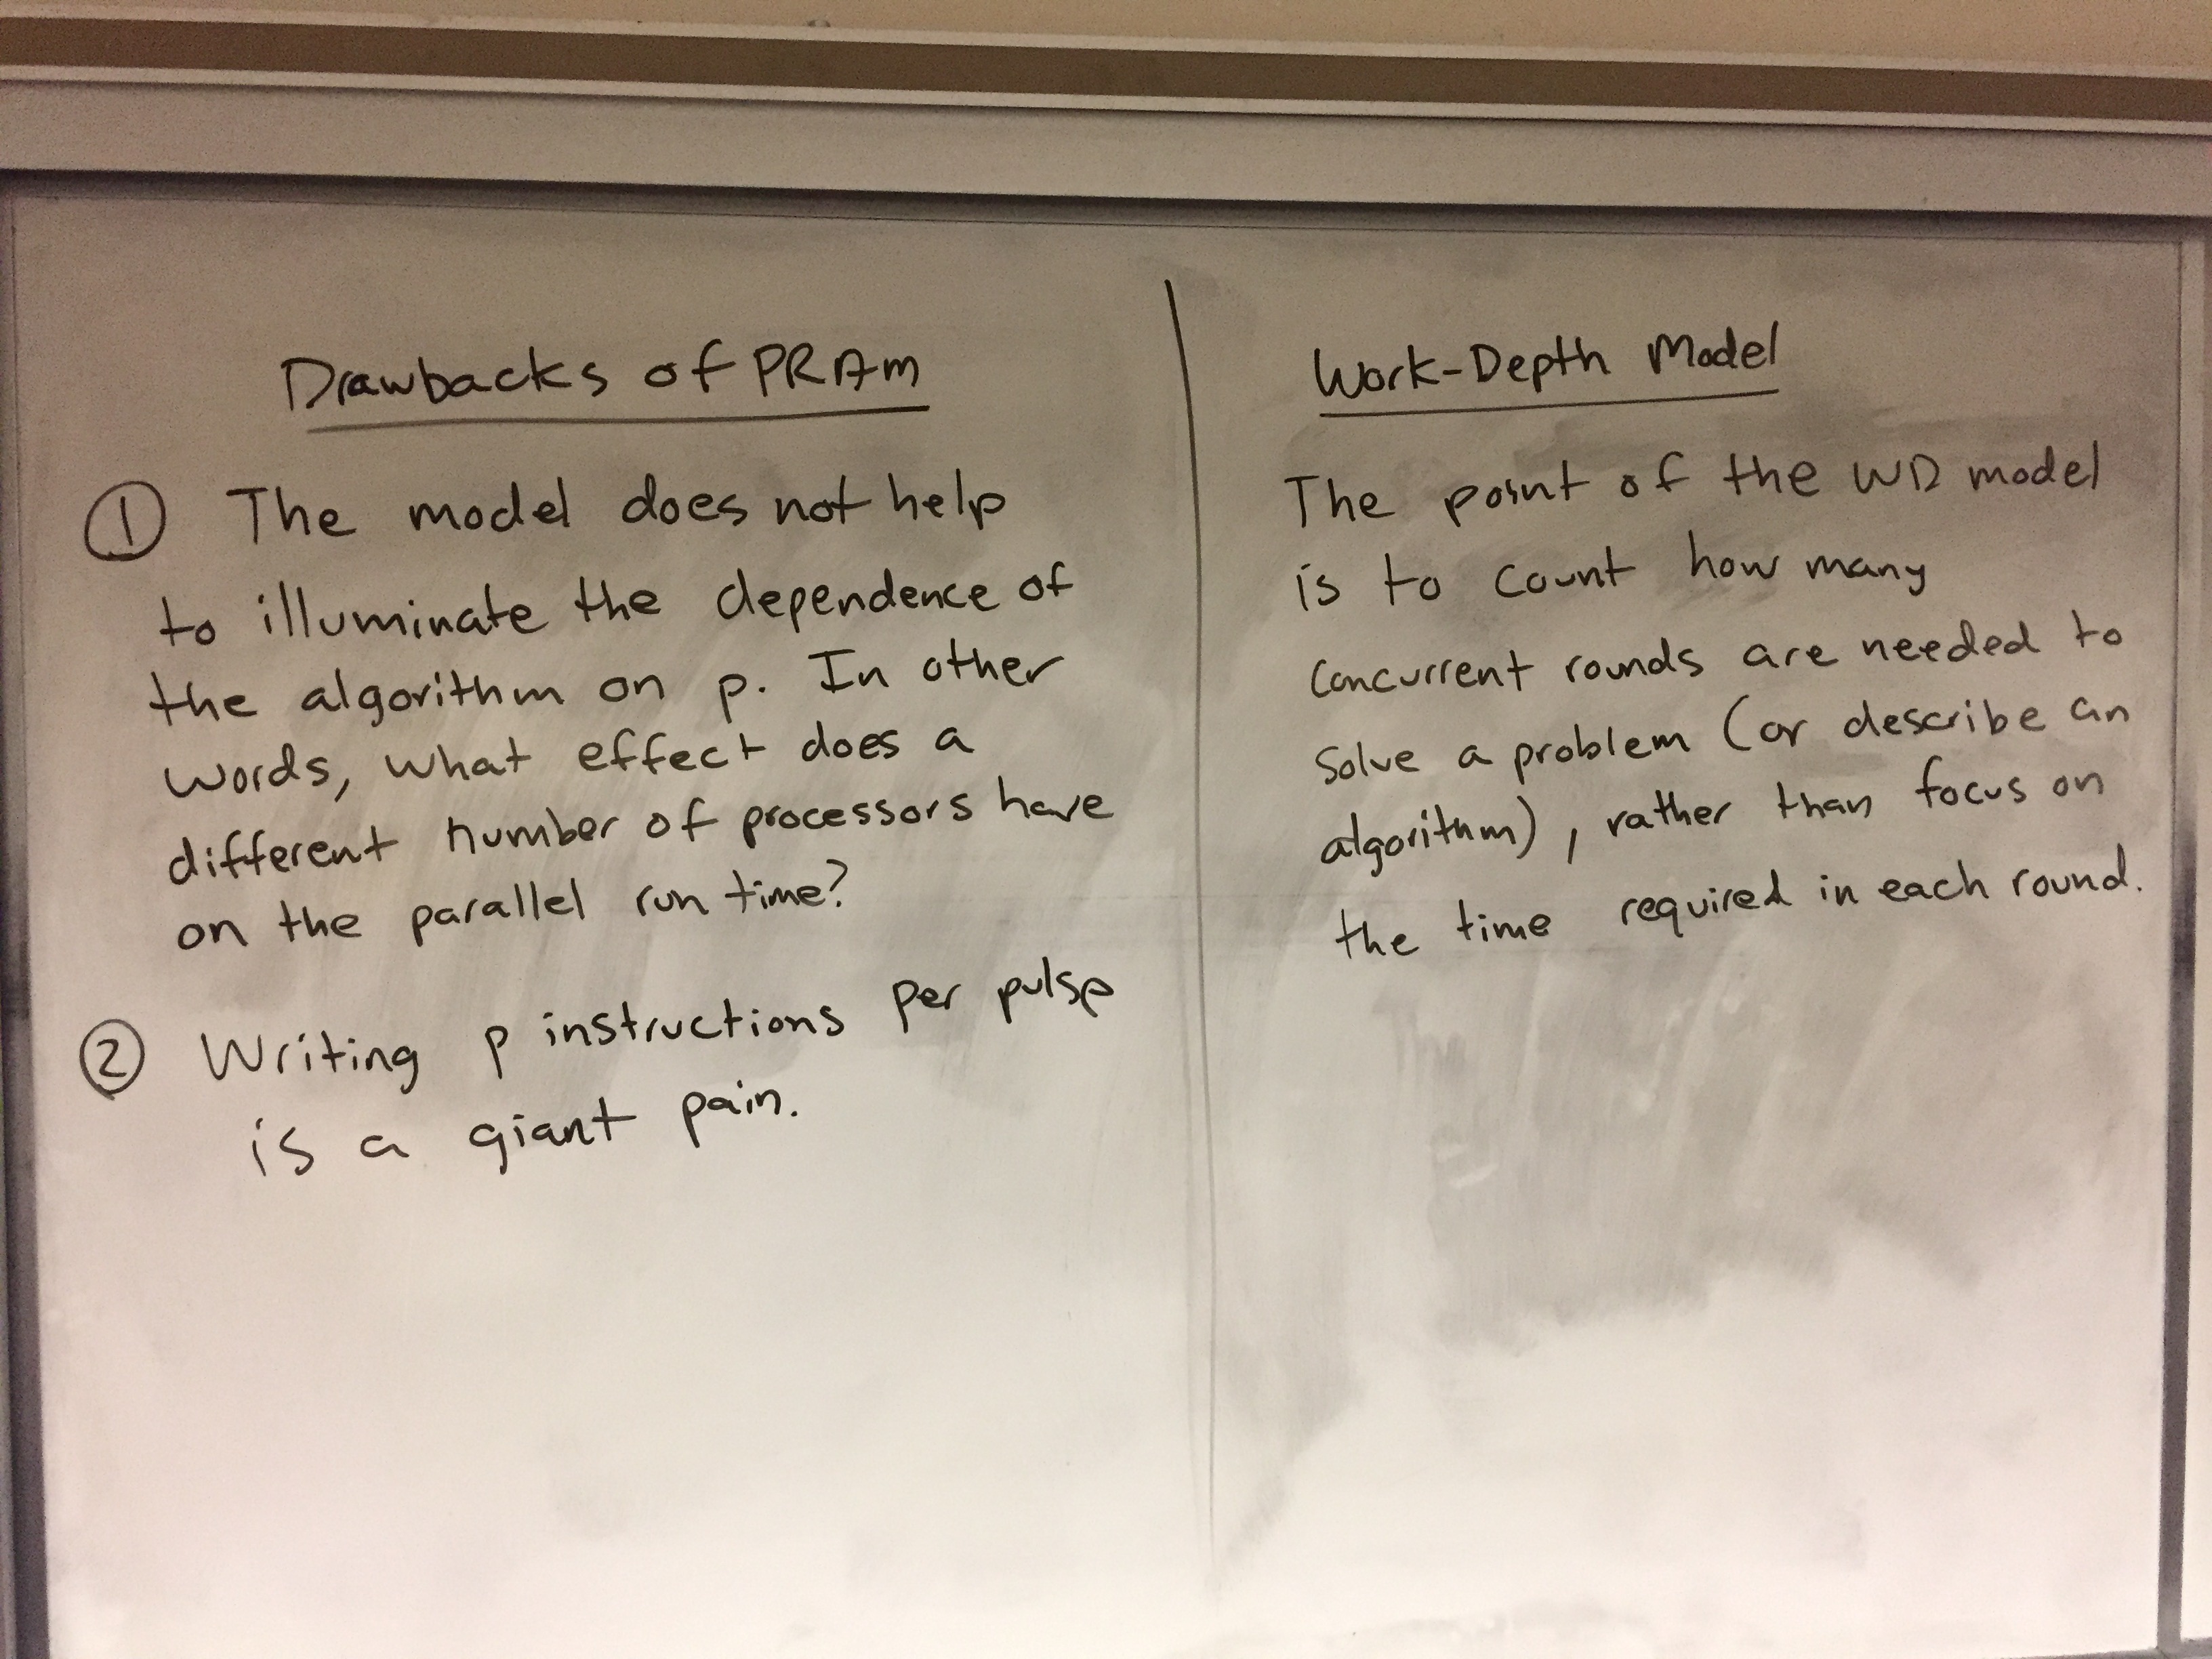 Drawbacks of PRAM
① The model does not help
to illuminate the dependence of
the algorithm on p. In other
words, what effect does a
different number of processors have
on the parallel run time?
② Writing p instructions per pulse
is a giant pain.
Work-Depth Model
The point of the WD model
is to count how many
concurrent rounds are needed to
solve a problem (or describe an
algorithm), rather than focus on
the time required in each round.